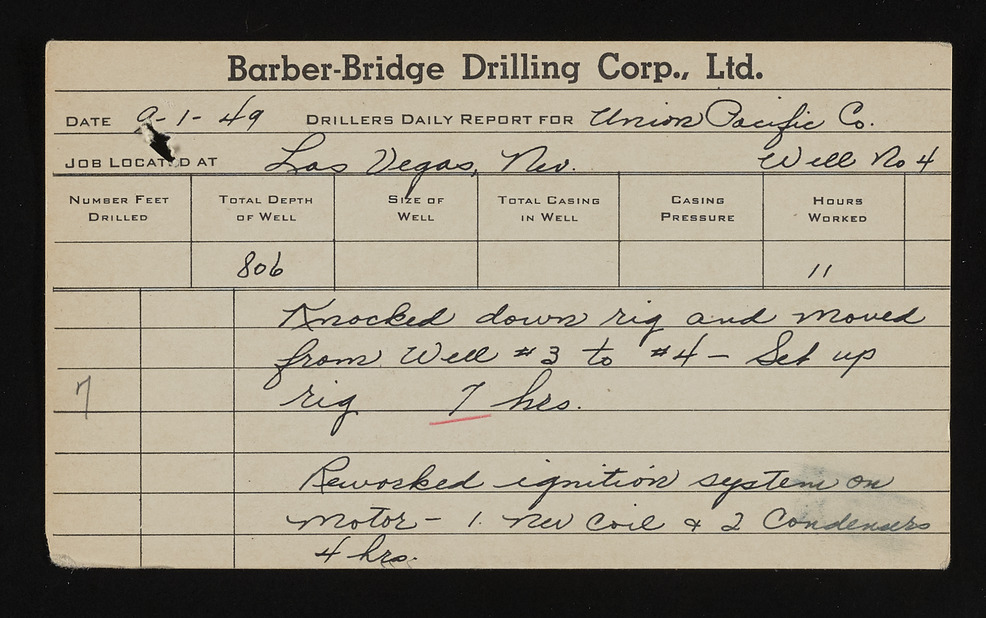 Barber-Bridge Drilling Corp., Ltd.
DATE 9-1-49 DRILLERS DAILY REPORT FOR Union Pacific Co.
JOB LOCATED AT Las Vegas, Nev. Well No 4
NUMBER FEET DRILLED TOTAL DEPTH OF WELL SIZE OF WELL TOTAL CASING IN WELL CASING PRESSURE HOURS WORKED
806 11
Knocked down rig and moved
from Well #3 to #4 - Set up
7 rig 7 hrs.
Reworked ignition system on
motor - 1. New Coil & 2 Condensers
4 hrs.